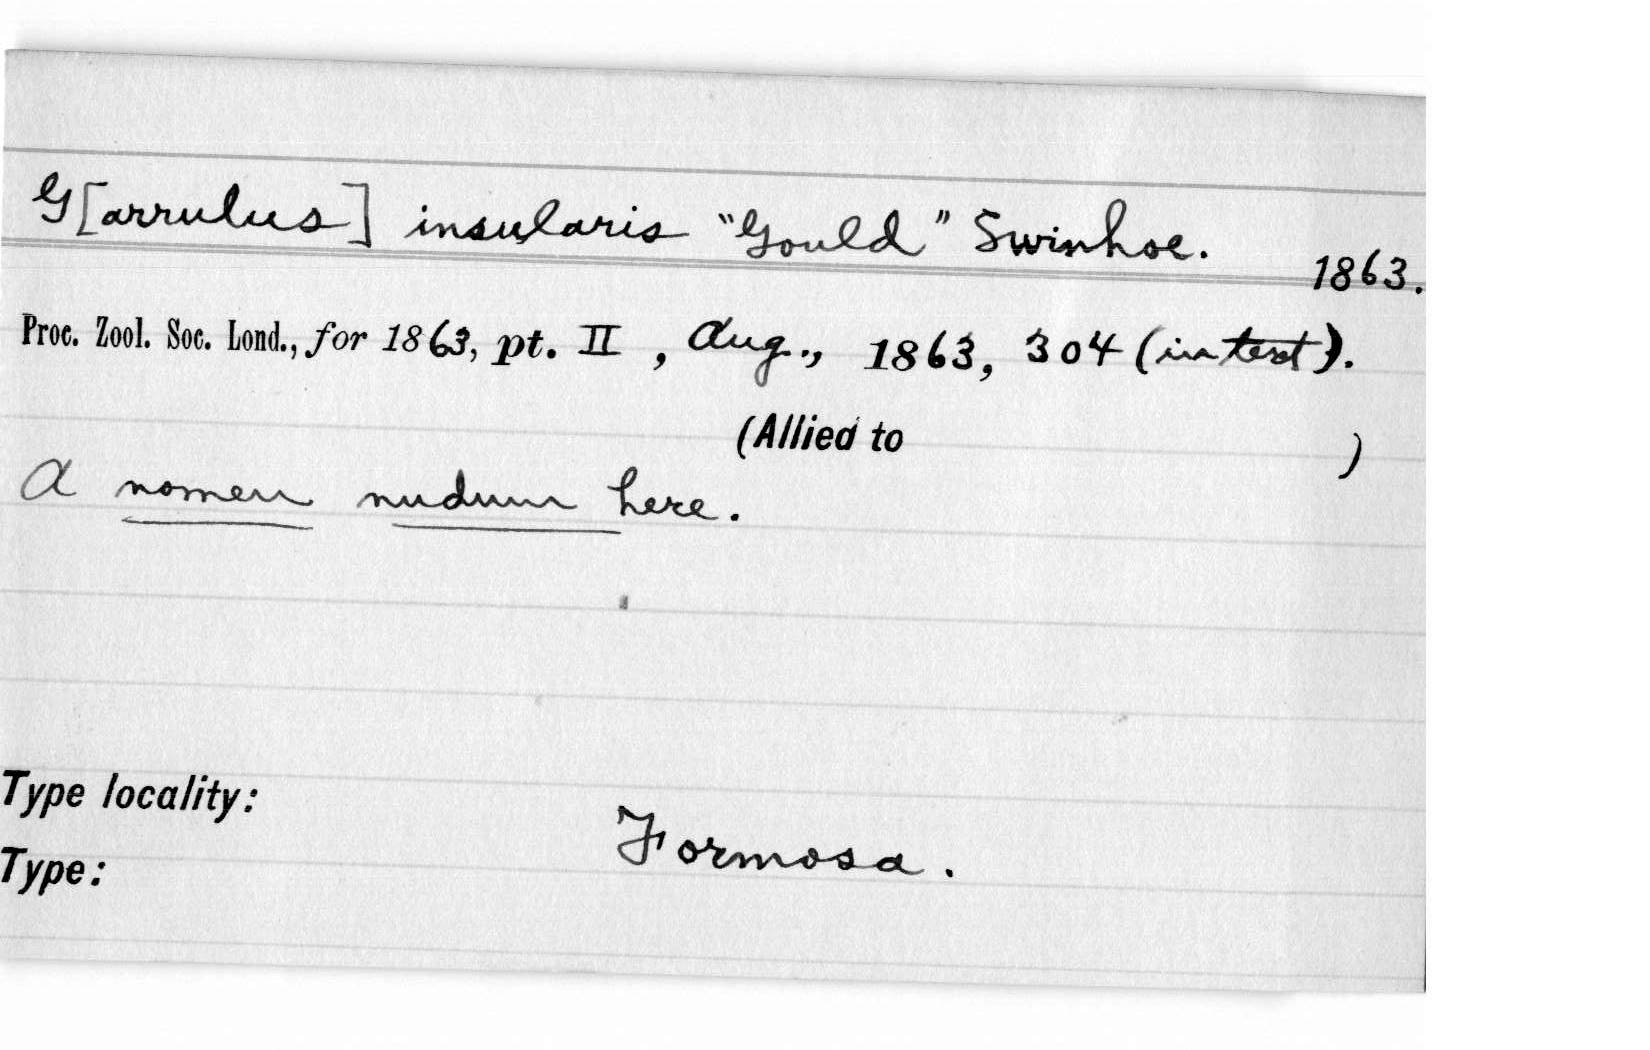 G[arrulus] insularis "Gould" Swinhoe. 1863.
Proc. Zool. Soc. Lond., for 1863, pt. II, Aug., 1863, 304 (in text).
(Allied to )
A nomen nudum here.
Type locality: Formosa.
Type: